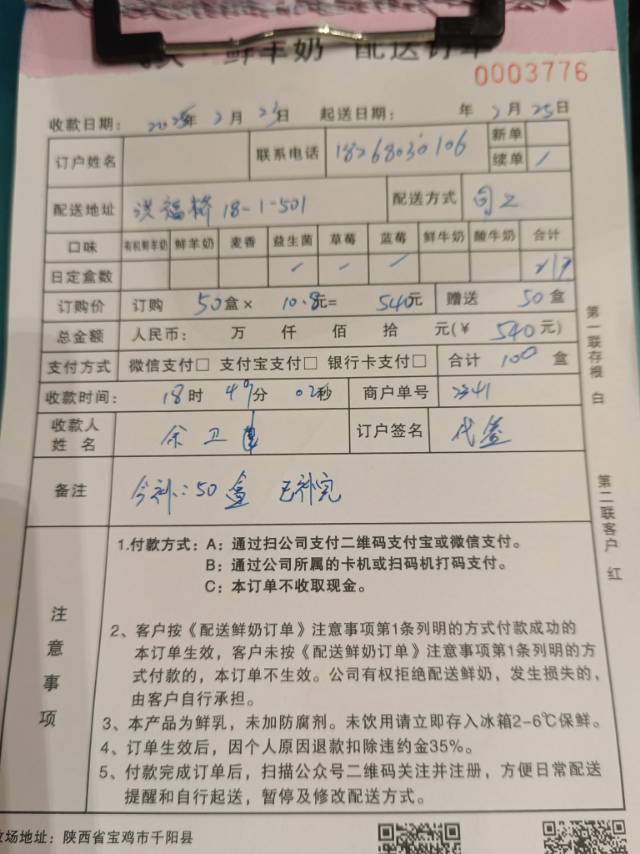 鲜羊奶 配送订单
0003776
收款日期： 2025年 2月 23日 起送日期： 年 2月 25日
订户姓名 联系电话 18268030106 新单
续单 /
配送地址 洪福桥18-1-501 配送方式
口味 有机鲜羊奶 鲜羊奶 麦香 益生菌 草莓 蓝莓 鲜牛奶 酸牛奶 合计
日定盒数 / / /
订购价 订购 50盒× 10.8元= 540元 赠送 50盒
总金额 人民币： 万 仟 佰 拾 元(￥ 540元)
支付方式 微信支付□ 支付宝支付□ 银行卡支付□ 合计 100 盒
收款时间： 18时 49分 02秒 商户单号 2341
收款人姓名 余卫 订户签名 代签
备注 今补：50盒 已补完
注意事项
1.付款方式：A：通过扫公司支付二维码支付宝或微信支付。
B：通过公司所属的卡机或扫码机打码支付。
C：本订单不收取现金。
2、客户按《配送鲜奶订单》注意事项第1条列明的方式付款成功的
本订单生效，客户未按《配送鲜奶订单》注意事项第1条列明的方
式付款的，本订单不生效。公司有权拒绝配送鲜奶，发生损失的，
由客户自行承担。
3、本产品为鲜乳，未加防腐剂。未饮用请立即存入冰箱2-6℃保鲜。
4、订单生效后，因个人原因退款扣除违约金35%。
5、付款完成订单后，扫描公众号二维码关注并注册，方便日常配送
提醒和自行起送，暂停及修改配送方式。
牧场地址：陕西省宝鸡市千阳县
第一联存根 白
第二联客户 红